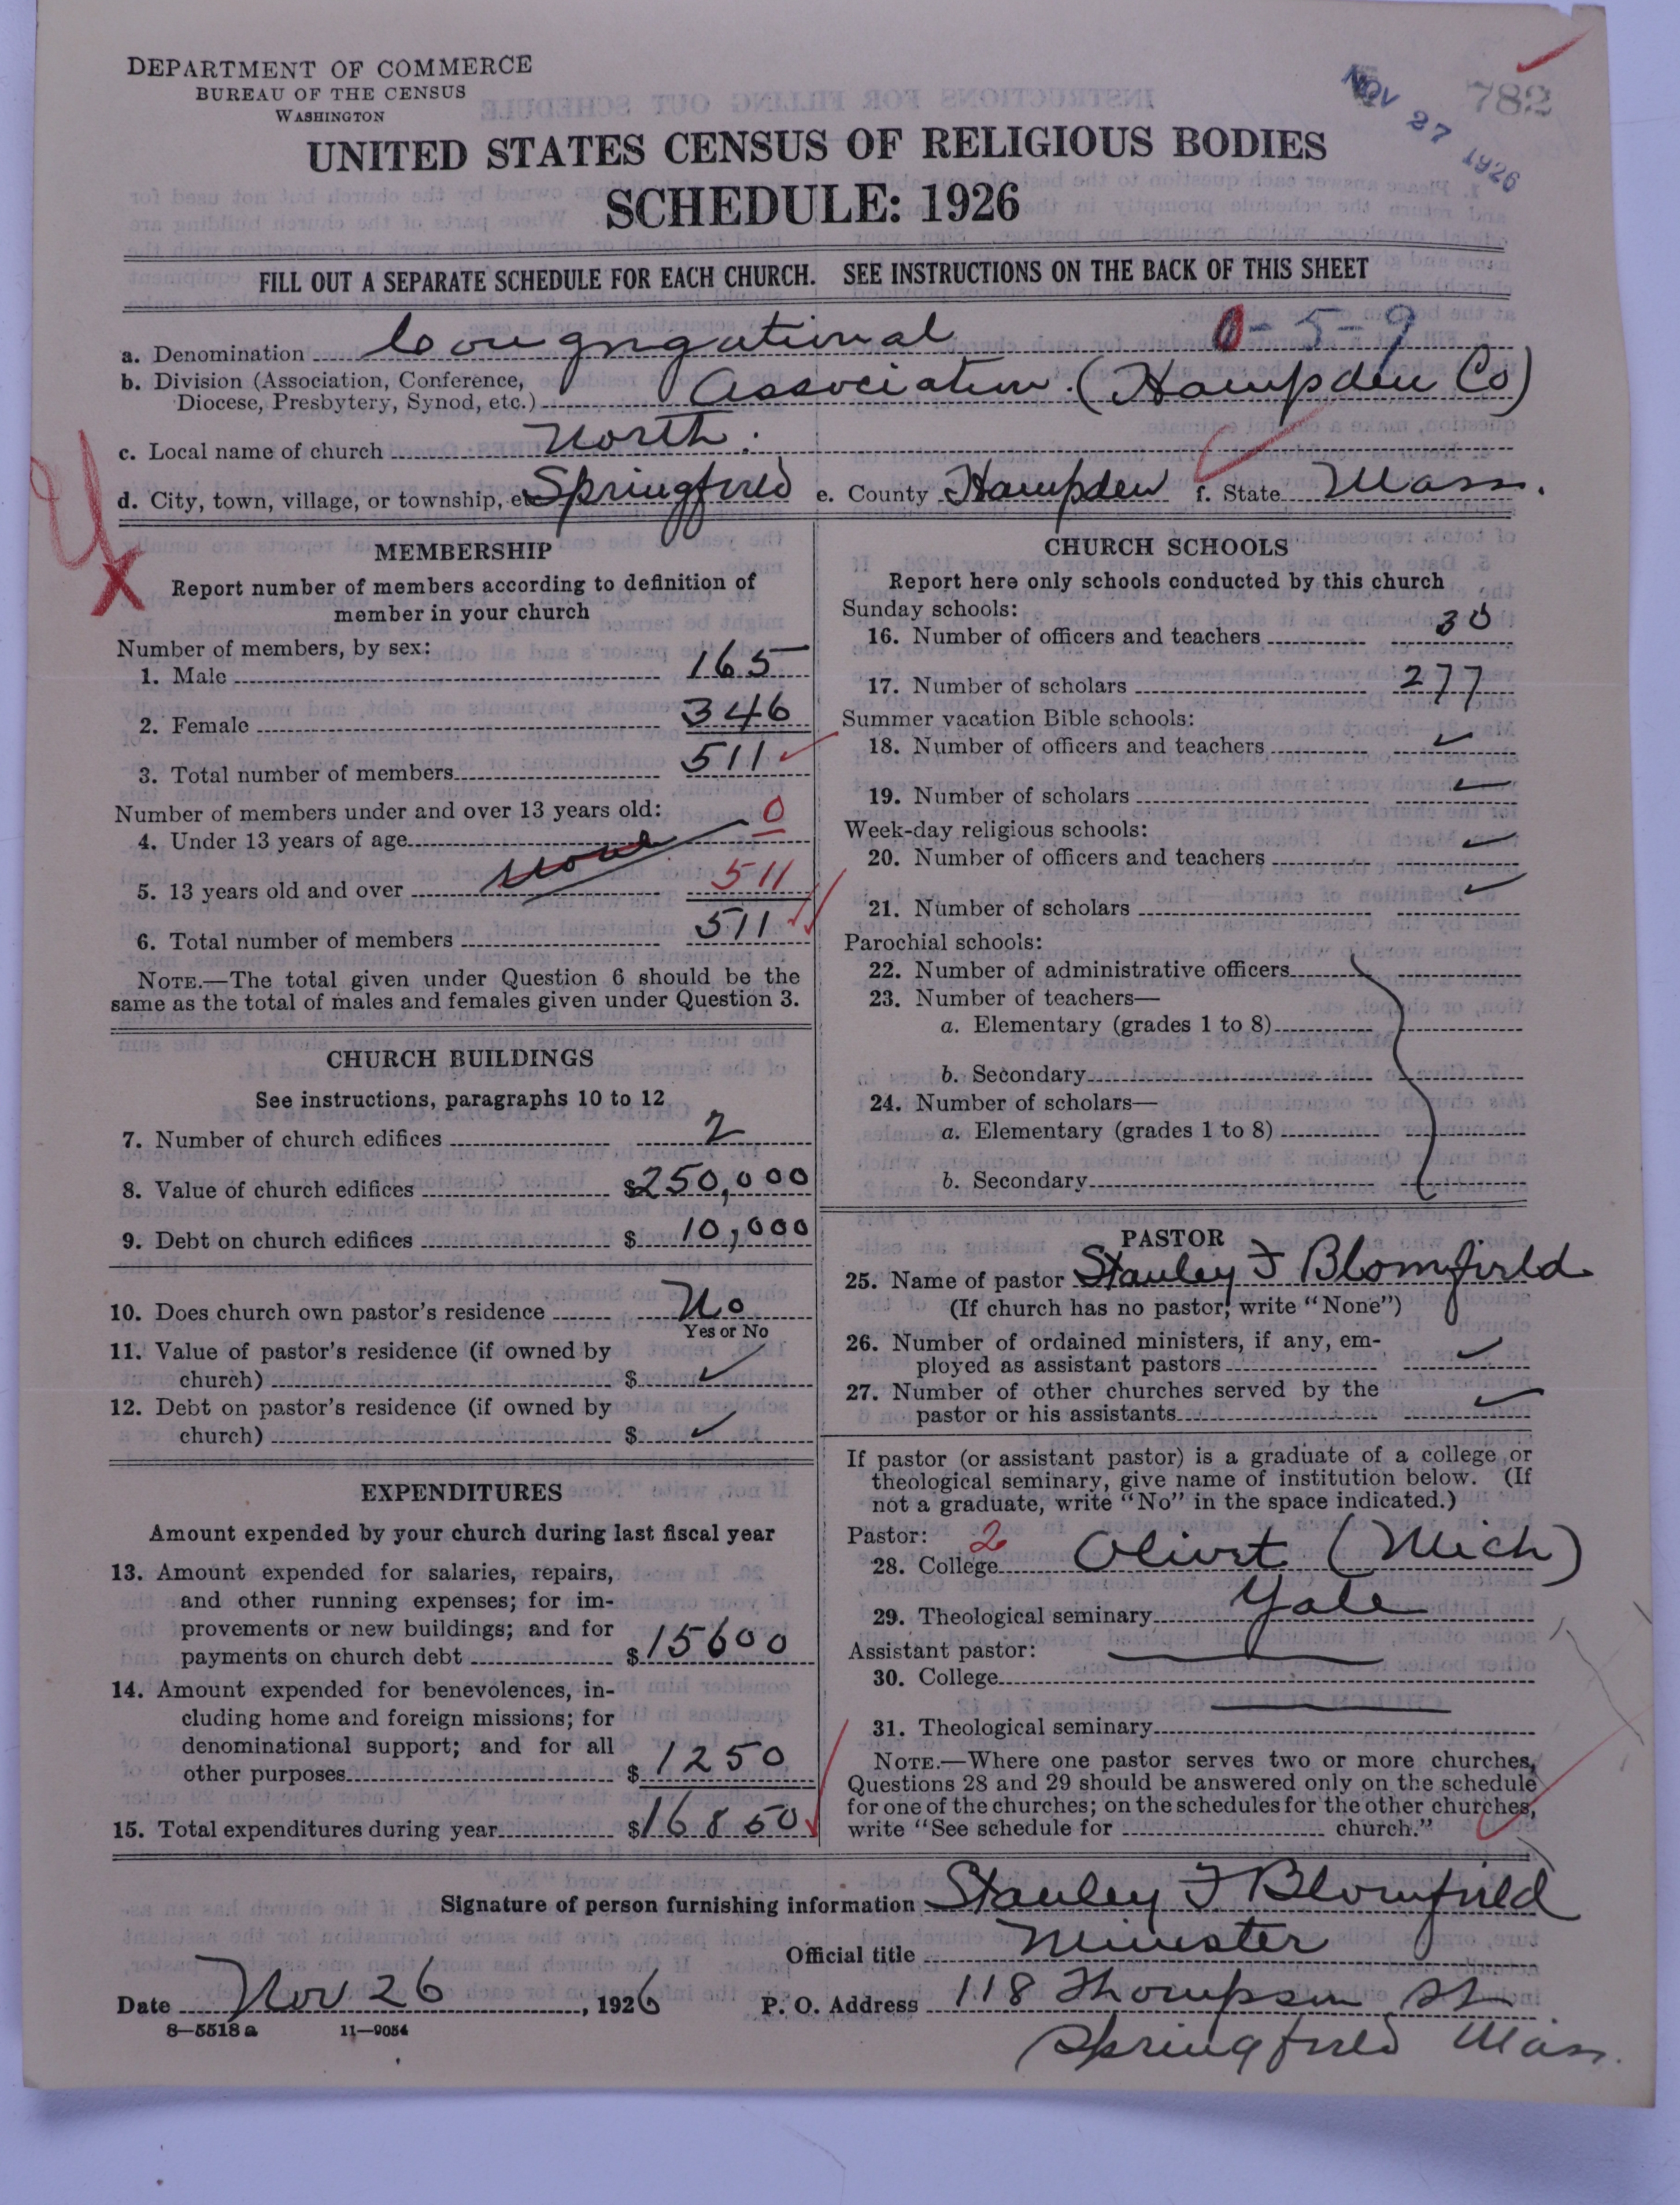 DEPARTMENT OF COMMERCE
BUREAU OF THE CENSUS
WASHINGTON
NOV 27 1926
782
UNITED STATES CENSUS OF RELIGIOUS BODIES
SCHEDULE: 1926
FILL OUT A SEPARATE SCHEDULE FOR EACH CHURCH. SEE INSTRUCTIONS ON THE BACK OF THIS SHEET
a. Denomination Congregational 0-5-9
b. Division (Association, Conference,
Diocese, Presbytery, Synod, etc.) Association. (Hampden Co)
c. Local name of church North.
d. City, town, village, or township, etc Springfield e. County Hampden f. State Mass.
MEMBERSHIP
Report number of members according to definition of
member in your church
Number of members, by sex:
1. Male 165
2. Female 346
3. Total number of members 511
Number of members under and over 13 years old:
4. Under 13 years of age none 0
5. 13 years old and over 511
6. Total number of members 511
NOTE.—The total given under Question 6 should be the
same as the total of males and females given under Question 3.
CHURCH BUILDINGS
See instructions, paragraphs 10 to 12
7. Number of church edifices 2
8. Value of church edifices $250,000
9. Debt on church edifices $10,000
10. Does church own pastor's residence No
Yes or No
11. Value of pastor's residence (if owned by
church) $ ✓
12. Debt on pastor's residence (if owned by
church) $ ✓
EXPENDITURES
Amount expended by your church during last fiscal year
13. Amount expended for salaries, repairs,
and other running expenses; for im-
provements or new buildings; and for
payments on church debt $15600
14. Amount expended for benevolences, in-
cluding home and foreign missions; for
denominational support; and for all
other purposes $1250
15. Total expenditures during year $16850
CHURCH SCHOOLS
Report here only schools conducted by this church
Sunday schools:
16. Number of officers and teachers 30
17. Number of scholars 277
Summer vacation Bible schools:
18. Number of officers and teachers ✓
19. Number of scholars ✓
Week-day religious schools:
20. Number of officers and teachers ✓
21. Number of scholars ✓
Parochial schools:
22. Number of administrative officers
23. Number of teachers—
a. Elementary (grades 1 to 8)
b. Secondary
24. Number of scholars—
a. Elementary (grades 1 to 8)
b. Secondary
PASTOR
25. Name of pastor Stanley F Blomfield
(If church has no pastor, write "None")
26. Number of ordained ministers, if any, em-
ployed as assistant pastors ✓
27. Number of other churches served by the
pastor or his assistants ✓
If pastor (or assistant pastor) is a graduate of a college or
theological seminary, give name of institution below. (If
not a graduate, write "No" in the space indicated.)
Pastor: 2
28. College Olivet (Mich)
29. Theological seminary Yale
Assistant pastor:
30. College
31. Theological seminary
NOTE.—Where one pastor serves two or more churches,
Questions 28 and 29 should be answered only on the schedule
for one of the churches; on the schedules for the other churches,
write "See schedule for church."
Signature of person furnishing information Stanley F Blomfield
Official title Minister
Date Nov 26, 1926 P. O. Address 118 Thompson St
8—5518 a 11—9054
Springfield Mass.